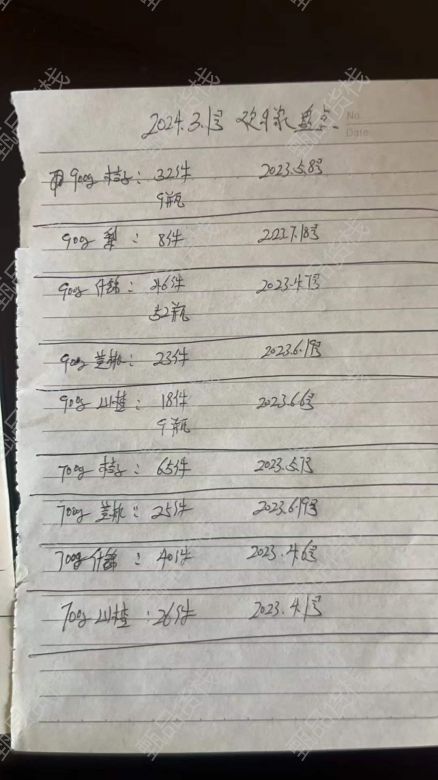 2024.3.1号 欢乐家盘点
No.
Date
900g 桔子：32件 2023.5.8号
9瓶
900g 梨：8件 2023.7.18号
900g 什锦：46件 2023.4.7号
52瓶
900g 黄桃：23件 2023.6.19号
900g 山楂：18件 2023.6.6号
9瓶
700g 桔子：65件 2023.5.7号
700g 黄桃：25件 2023.6.19号
700g 什锦：40件 2023.4.6号
700g 山楂：26件 2023.4.1号
甄品货栈